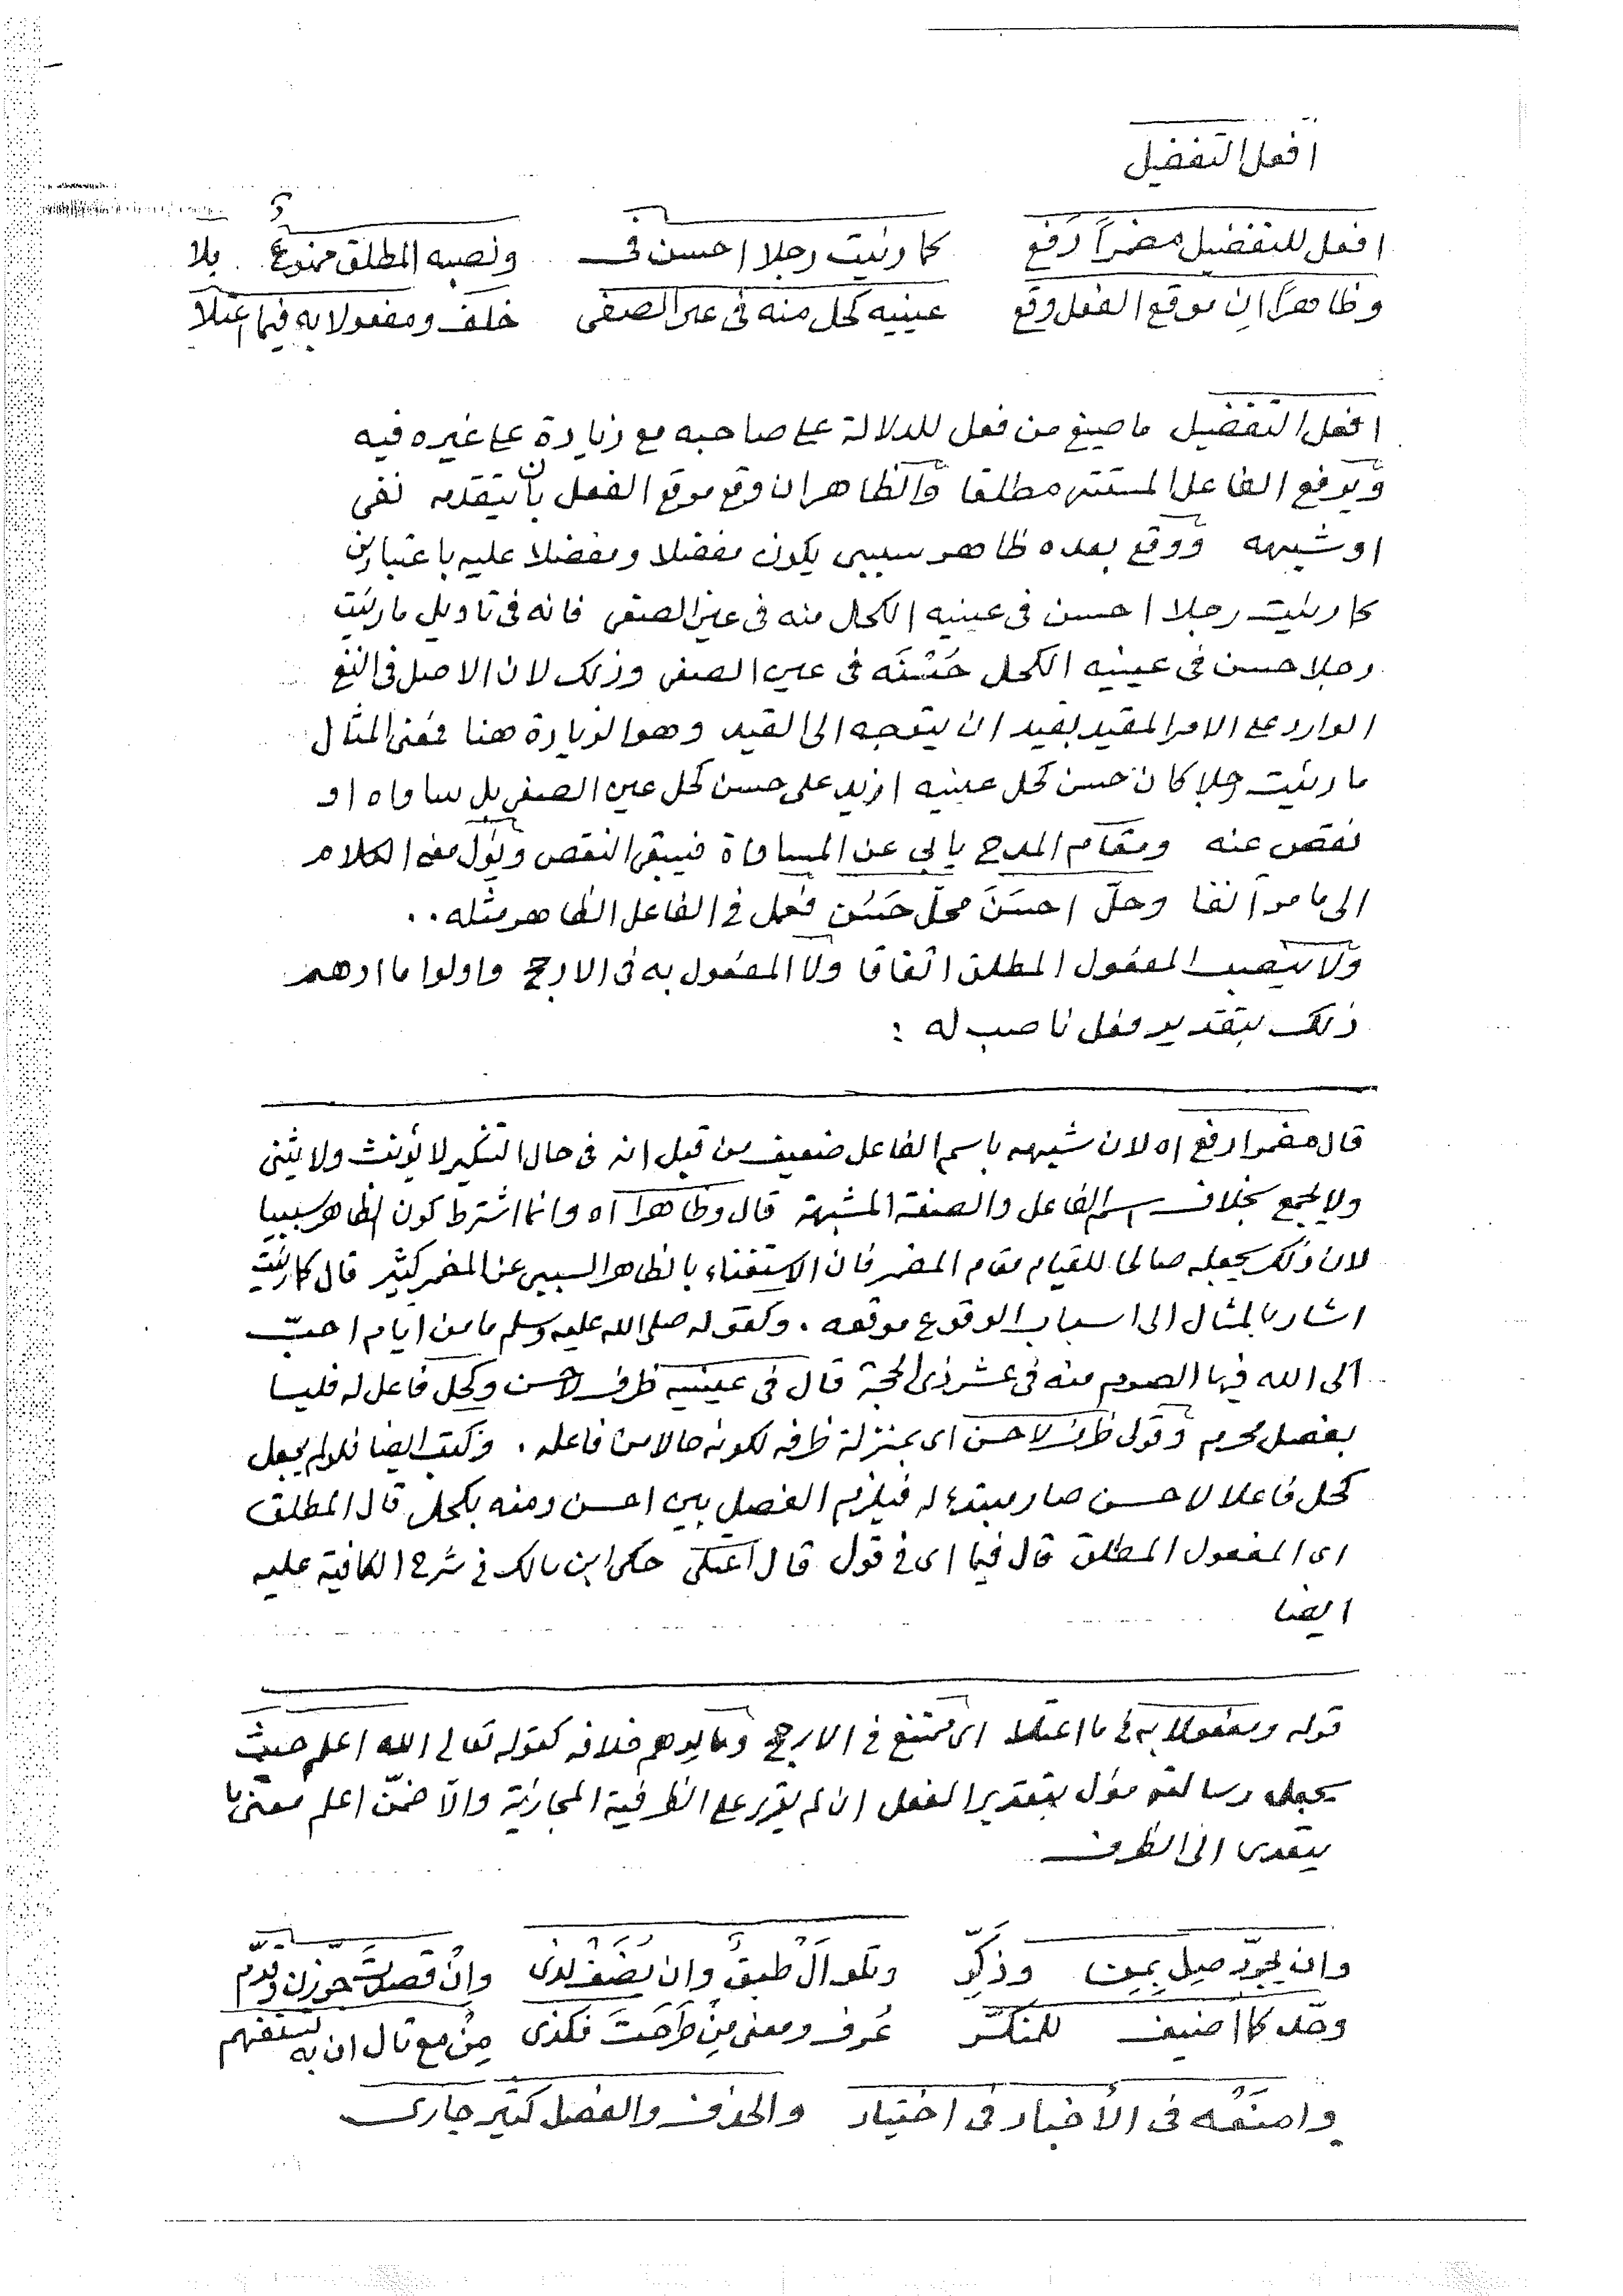 افعل التفضيل
افعل للتفضيل مضمراً رَفع كما رئيت رجلا احسن فى ونصبه المطلق ممنوعٌ بلا
وظاهراً ان موقع الفعل وقع عينيه كحل منه فى عين الصفى خلف ومفعولا به فيما اعتلا
افعل التفضيل ما صيغ من فعل للدلالة على صاحبه مع زيادة على غيره فيه
ويرفع الفاعل المستتر مطلقا والظاهر ان وقع موقع الفعل بان يتقدمه نفى
او شبهه ووقع بعده ظاهر سببى يكون مفضلا ومفضلا عليه باعتبارين
كما رئيت رجلا احسن فى عينيه الكحل منه فى عين الصفى فانه فى تاويل ما رئيت
رجلا حسن فى عينيه الكحل حُسْنَه فى عين الصفى وذلك لان الاصل فى النفى
الوارد على الامر المقيد بقيد ان يتوجه الى القيد وهو الزيادة هنا فمعنى المثال
ما رئيت رجلا كان حسن كحل عينيه ازيد على حسن كحل عين الصفى بل ساواه او
نقص عنه ومقام المدح يابى عن المساواة فيبقى النقص ويؤل معنى الكلام
الى ما مر آنفا وحلّ احسَنَ محلّ حَسُن فعمل فى الفاعل الظاهر مثله..
ولا ينصب المفعول المطلق اتفاقا ولا المفعول به فى الارجح واولوا ما اوهم
ذلك بتقدير فعل ناصب له :
قال مضمرا رفع اه لان شبهه باسم الفاعل ضعيف من قبل انه فى حال التنكير لا يؤنث ولا يثنى
ولا يجمع بخلاف اسم الفاعل والصفة المشبهة قال وظاهراً اه وانما اشترط كون الظاهر سببيا
لان ذلك يجعله صالحا للقيام مقام المضمر فان الاستغناء بالظاهر السببى عن المضمر كثير قال كما رئيت
اشار بالمثال الى اسباب الوقوع موقعه. وكقوله صلى الله عليه وسلم ما من ايام احبّ
الى الله فيها الصوم منه فى عشر ذى الحجة قال فى عينيه ظرف لاحسن وكحل فاعل له فليسا
بفصل محرم وقولى ظرف لاحسن اى بمنزلة ظرفه لكونه حالا من فاعله. وكتب ايضا فلو لم يجعل
كحل فاعلا لاحسن صار مبتدء له فيلزم الفصل بين احسن ومنه بكحل قال المطلق
اى المفعول المطلق قال فيما اى فى قول قال اعتلى حكى ابن مالك فى شرح الكافية عليه
ايضا
قوله ومفعولا به فى ما اعتلا اى ممتنع فى الارجح وما يوهم خلافه كقوله تعالى الله اعلم حيث
يجعل رسالته مؤل بتقدير الفعل ان لم يقرر على الظرفية المجازية والّا ضمّن اعلم معنى ما
يتعدى الى الظرف
وان يجرّد صيل بمِن وذَكِّر وتلو اَلْ طبقٌ وان يُضَفْ لذى وانْ قصدتَ جوّزن وقدّم
وحّد كما اضيف للمنكّر عُرف ومعنى مِنْ طَرَحَتَ فكذى مِنْ مع تال ان به يستفهم
وامنَعْه فى الأخبار فى اختيار والحذف والفصل كثير جارى